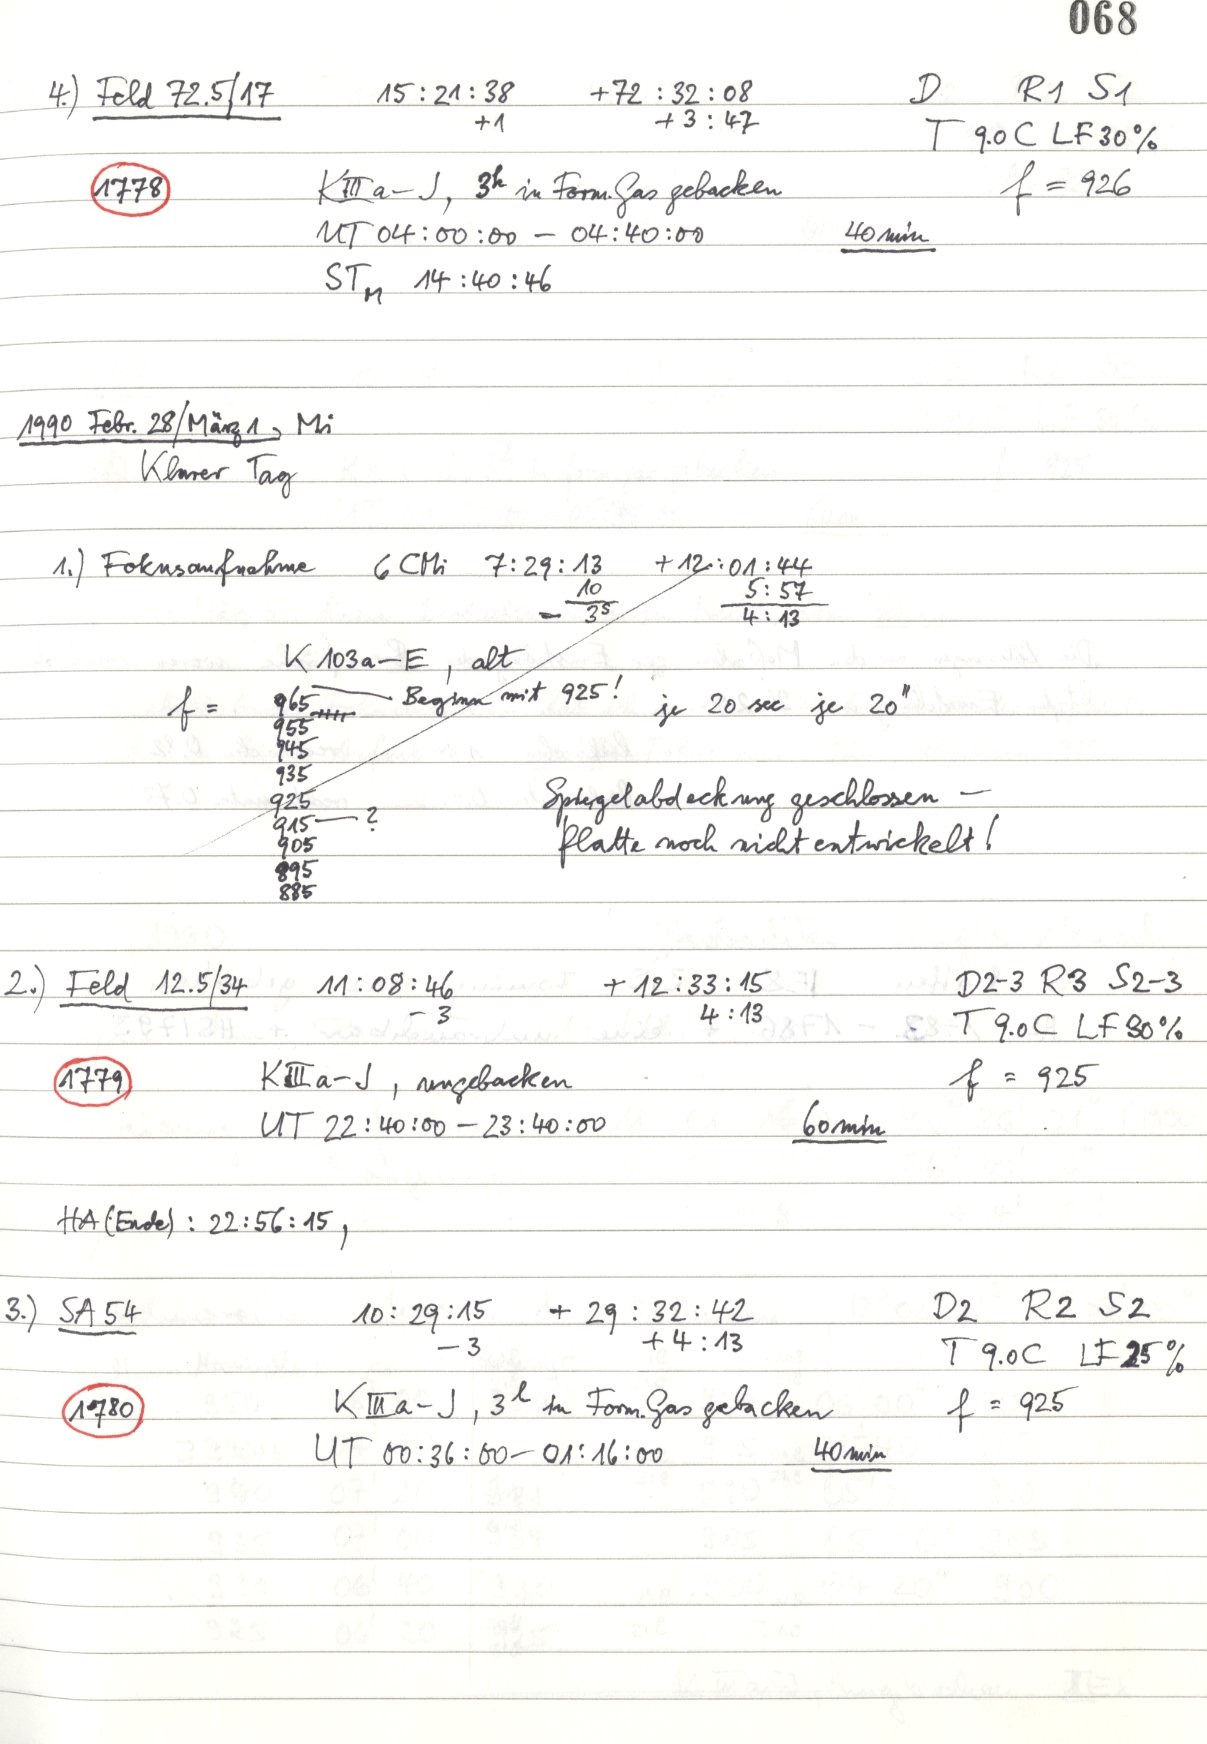 068
4.) Feld 72.5/17 15:21:38 +72:32:08 D R1 S1
+1 +3:47 T 9.0C LF30%
1778 KIIIa-J, 3h in Form.Gas gebacken f = 926
UT 04:00:00 - 04:40:00 40min
STM 14:40:46
1990 Febr. 28/März 1, Mi
Klarer Tag
1.) Fokusaufnahme 6 CMi 7:29:13 +12:01:44
10 5:57
- 3s 4:13
K 103a-E, alt
f = 965 Beginn mit 925! je 20 sec je 20"
955
945
935
925 Spiegelabdeckung geschlossen -
915 - ?
905 Platte noch nicht entwickelt!
895
885
2.) Feld 12.5/34 11:08:46 +12:33:15 D2-3 R3 S2-3
-3 4:13 T 9.0C LF30%
1779 KIIIa-J, ungebacken f = 925
UT 22:40:00 - 23:40:00 60min
HA (Ende): 22:56:15,
3.) SA 54 10:29:15 +29:32:42 D2 R2 S2
-3 +4:13 T 9.0C LF25%
1780 KIIIa-J, 3h in Form.Gas gebacken f = 925
UT 00:36:00 - 01:16:00 40min